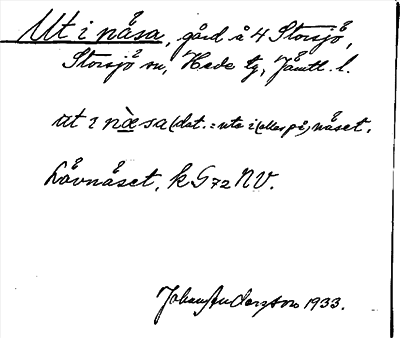 Ut i nåsa, gård å 4 Storsjö,
Storsjö sn, Hede tg, Jämtl. l.
ut i næ̀sa (dat. = ute i (eller på) näset.
Lövnäset, k G 72 NV.
Johan Anderzson 1933.